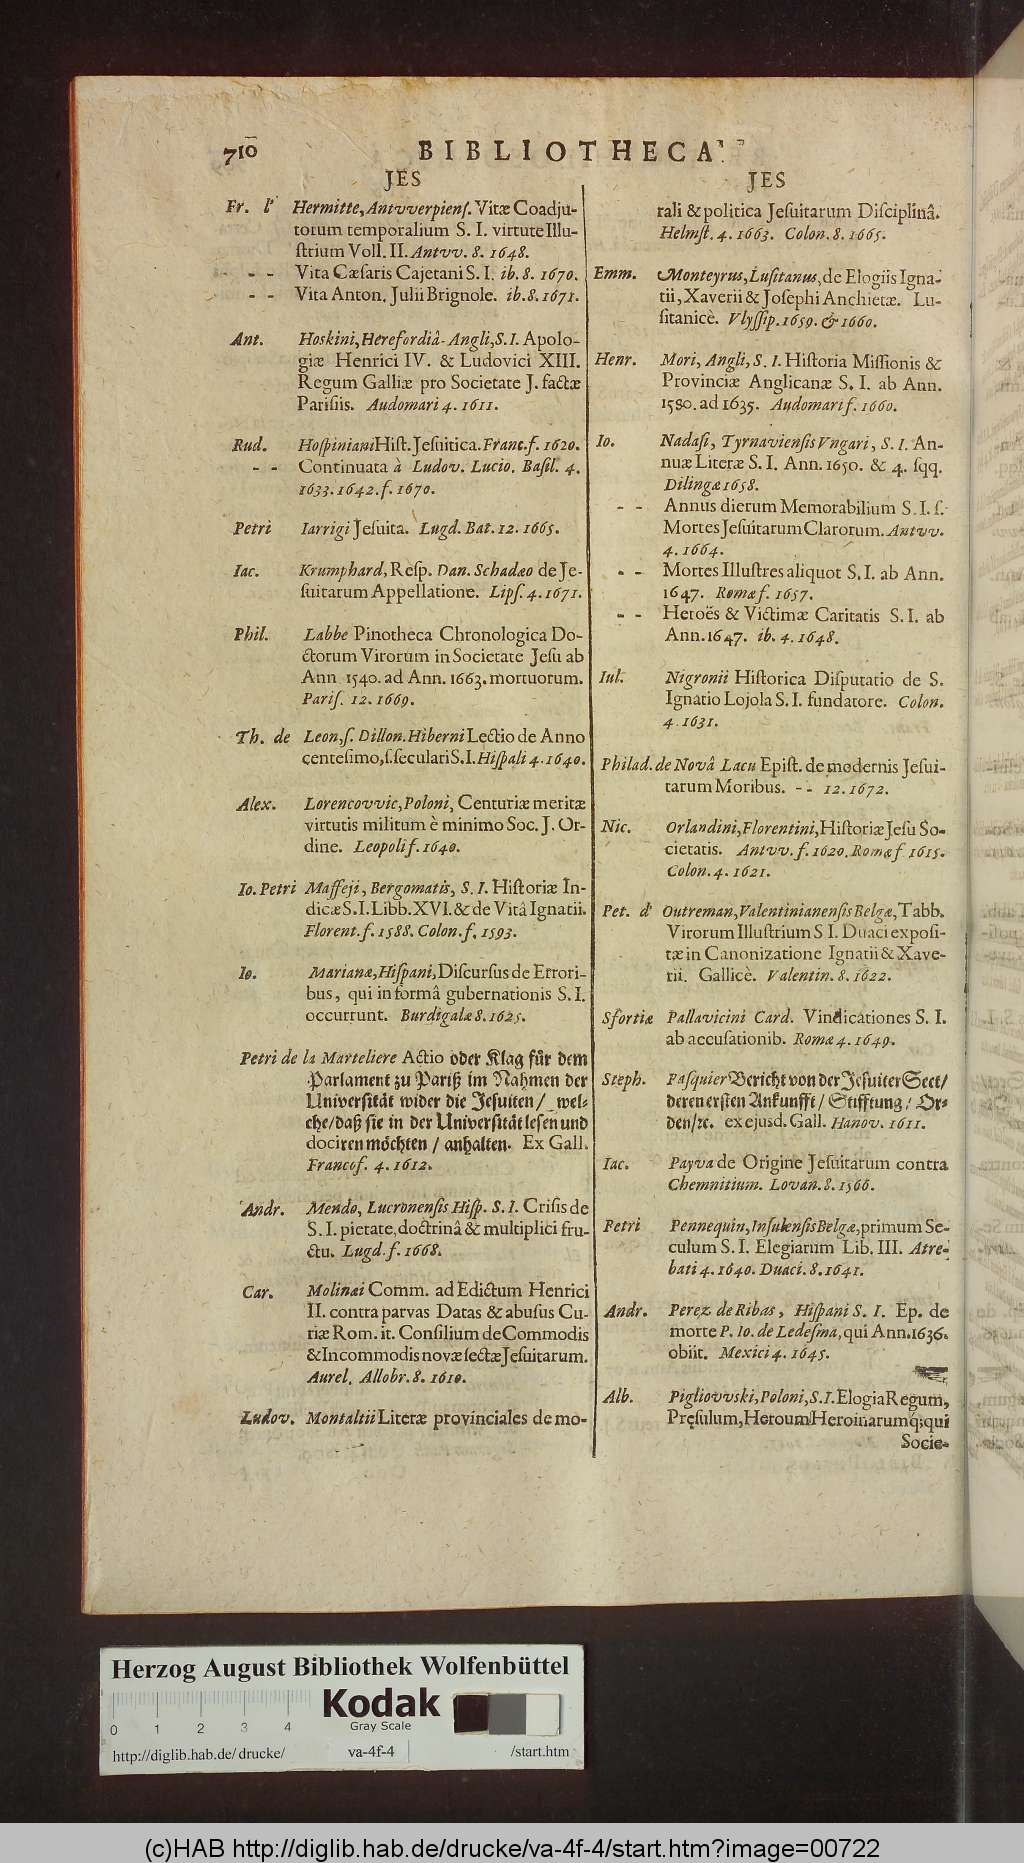 710
BIBLIOTHECA
JES
Fr. l' Hermitte, Antvverpienſ. Vitæ Coadju-
torum temporalium S. I. virtute Illu-
ſtrium Voll. II. Antvv. 8. 1648.
- - - Vita Cæſaris Cajetani S. I. ib. 8. 1670.
- - Vita Anton. Julii Brignole. ib. 8. 1671.
Ant. Hoskini, Herefordiâ-Angli, S. I. Apolo-
giæ Henrici IV. & Ludovici XIII.
Regum Galliæ pro Societate J. factæ
Pariſiis. Audomari 4. 1611.
Rud. Hoſpiniani Hiſt. Jeſuitica. Franc. f. 1620.
- - Continuata à Ludov. Lucio. Baſil. 4.
1633. 1642. f. 1670.
Petri Iarrigi Jeſuita. Lugd. Bat. 12. 1665.
Iac. Krumphard, Reſp. Dan. Schadæo de Je-
ſuitarum Appellatione. Lipſ. 4. 1671.
Phil. Labbe Pinotheca Chronologica Do-
ctorum Virorum in Societate Jeſu ab
Ann 1540. ad Ann. 1663. mortuorum.
Pariſ. 12. 1669.
Th. de Leon, ſ. Dillon. Hiberni Lectio de Anno
centeſimo, ſ. ſeculari S. I. Hiſpali 4. 1640.
Alex. Lorencovvic, Poloni, Centuriæ meritæ
virtutis militum è minimo Soc. J. Or-
dine. Leopoli f. 1640.
Io. Petri Maffeji, Bergomatis, S. I. Hiſtoriæ In-
dicæ S. I. Libb. XVI. & de Vitâ Ignatii.
Florent. f. 1588. Colon. f. 1593.
Io. Marianæ, Hiſpani, Diſcurſus de Errori-
bus, qui in formâ gubernationis S. I.
occurrunt. Burdigalæ 8. 1625.
Petri de la Marteliere Actio oder Klag für dem
Parlament zu Pariß im Nahmen der
Univerſität wider die Jeſuiten / wel-
che / daß ſie in der Univerſität leſen und
dociren möchten / anhalten. Ex Gall.
Francof. 4. 1612.
Andr. Mendo, Lucronenſis Hiſp. S. I. Criſis de
S. I. pietate, doctrinâ & multiplici fru-
ctu. Lugd. f. 1668.
Car. Molinæi Comm. ad Edictum Henrici
II. contra parvas Datas & abuſus Cu-
riæ Rom. it. Conſilium de Commodis
& Incommodis novæ ſectæ Jeſuitarum.
Aurel. Allobr. 8. 1610.
Ludov. Montaltii Literæ provinciales de mo-
JES
rali & politica Jeſuitarum Diſciplinâ.
Helmſt. 4. 1663. Colon. 8. 1665.
Emm. Monteyrus, Luſitanus, de Elogiis Igna-
tii, Xaverii & Joſephi Anchietæ. Lu-
ſitanicè. Vlyſſip. 1659. & 1660.
Henr. Mori, Angli, S. I. Hiſtoria Miſſionis &
Provinciæ Anglicanæ S. I. ab Ann.
1580. ad 1635. Audomari f. 1660.
Io. Nadaſi, Tyrnavienſis Vngari, S. I. An-
nuæ Literæ S. I. Ann. 1650. & 4. ſqq.
Dilingæ 1658.
- - Annus dierum Memorabilium S. I. ſ.
Mortes Jeſuitarum Clarorum. Antvv.
4. 1664.
- - Mortes Illuſtres aliquot S. I. ab Ann.
1647. Romæ f. 1657.
- - Heroës & Victimæ Caritatis S. I. ab
Ann. 1647. ib. 4. 1648.
Iul. Nigronii Hiſtorica Diſputatio de S.
Ignatio Lojola S. I. fundatore. Colon.
4. 1631.
Philad. de Novâ Lacu Epiſt. de modernis Jeſui-
tarum Moribus. - - 12. 1672.
Nic. Orlandini, Florentini, Hiſtoriæ Jeſu So-
cietatis. Antvv. f. 1620. Romæ f 1615.
Colon. 4. 1621.
Pet. d' Outreman, Valentinianenſis Belgæ, Tabb.
Virorum Illuſtrium S I. Duaci expoſi-
tæ in Canonizatione Ignatii & Xave-
rii. Gallicè. Valentin. 8. 1622.
Sfortiæ Pallavicini Card. Vindicationes S. I.
ab accuſationib. Romæ 4. 1649.
Steph. Paſquier Bericht von der Jeſuiter Sect /
deren erſten Ankunfft / Stifftung / Or-
den / ꝛc. ex ejusd. Gall. Hanov. 1611.
Iac. Payva de Origine Jeſuitarum contra
Chemnitium. Lovan. 8. 1566.
Petri Pennequin, Inſulenſis Belgæ, primum Se-
culum S. I. Elegiarum Lib. III. Atre-
bati 4. 1640. Duaci. 8. 1641.
Andr. Perez de Ribas, Hiſpani S. I. Ep. de
morte P. Io. de Ledeſma, qui Ann. 1636.
obiit. Mexici 4. 1645.
Alb. Pigliovvski, Poloni, S. I. Elogia Regum,
Pręſulum, Heroum Heroinarumq; qui
Socie-
Herzog August Bibliothek Wolfenbüttel
Kodak
Gray Scale
0 1 2 3 4
http://diglib.hab.de/drucke/ va-4f-4 /start.htm
(c)HAB http://diglib.hab.de/drucke/va-4f-4/start.htm?image=00722